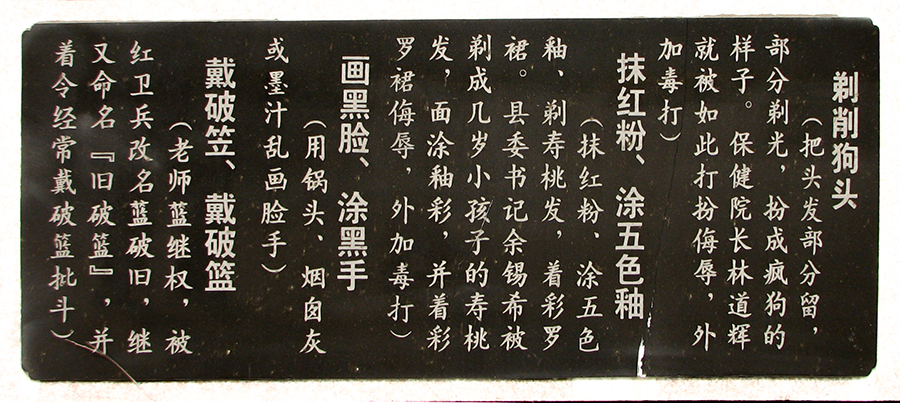 剃削狗头
（把头发部分留，
部分剃光，扮成疯狗的
样子。保健院长林道辉
就被如此打扮侮辱，外
加毒打）
抹红粉、涂五色釉
（抹红粉、涂五色
釉、剃寿桃发，着彩罗
裙。县委书记余锡希被
剃成几岁小孩子的寿桃
发，面涂釉彩，并着彩
罗裙侮辱，外加毒打）
画黑脸、涂黑手
（用锅头、烟囱灰
或墨汁乱画脸手）
戴破笠、戴破篮
（老师蓝继权，被
红卫兵改名蓝破旧，继
又命名『旧破篮』，并
着令经常戴破篮批斗）